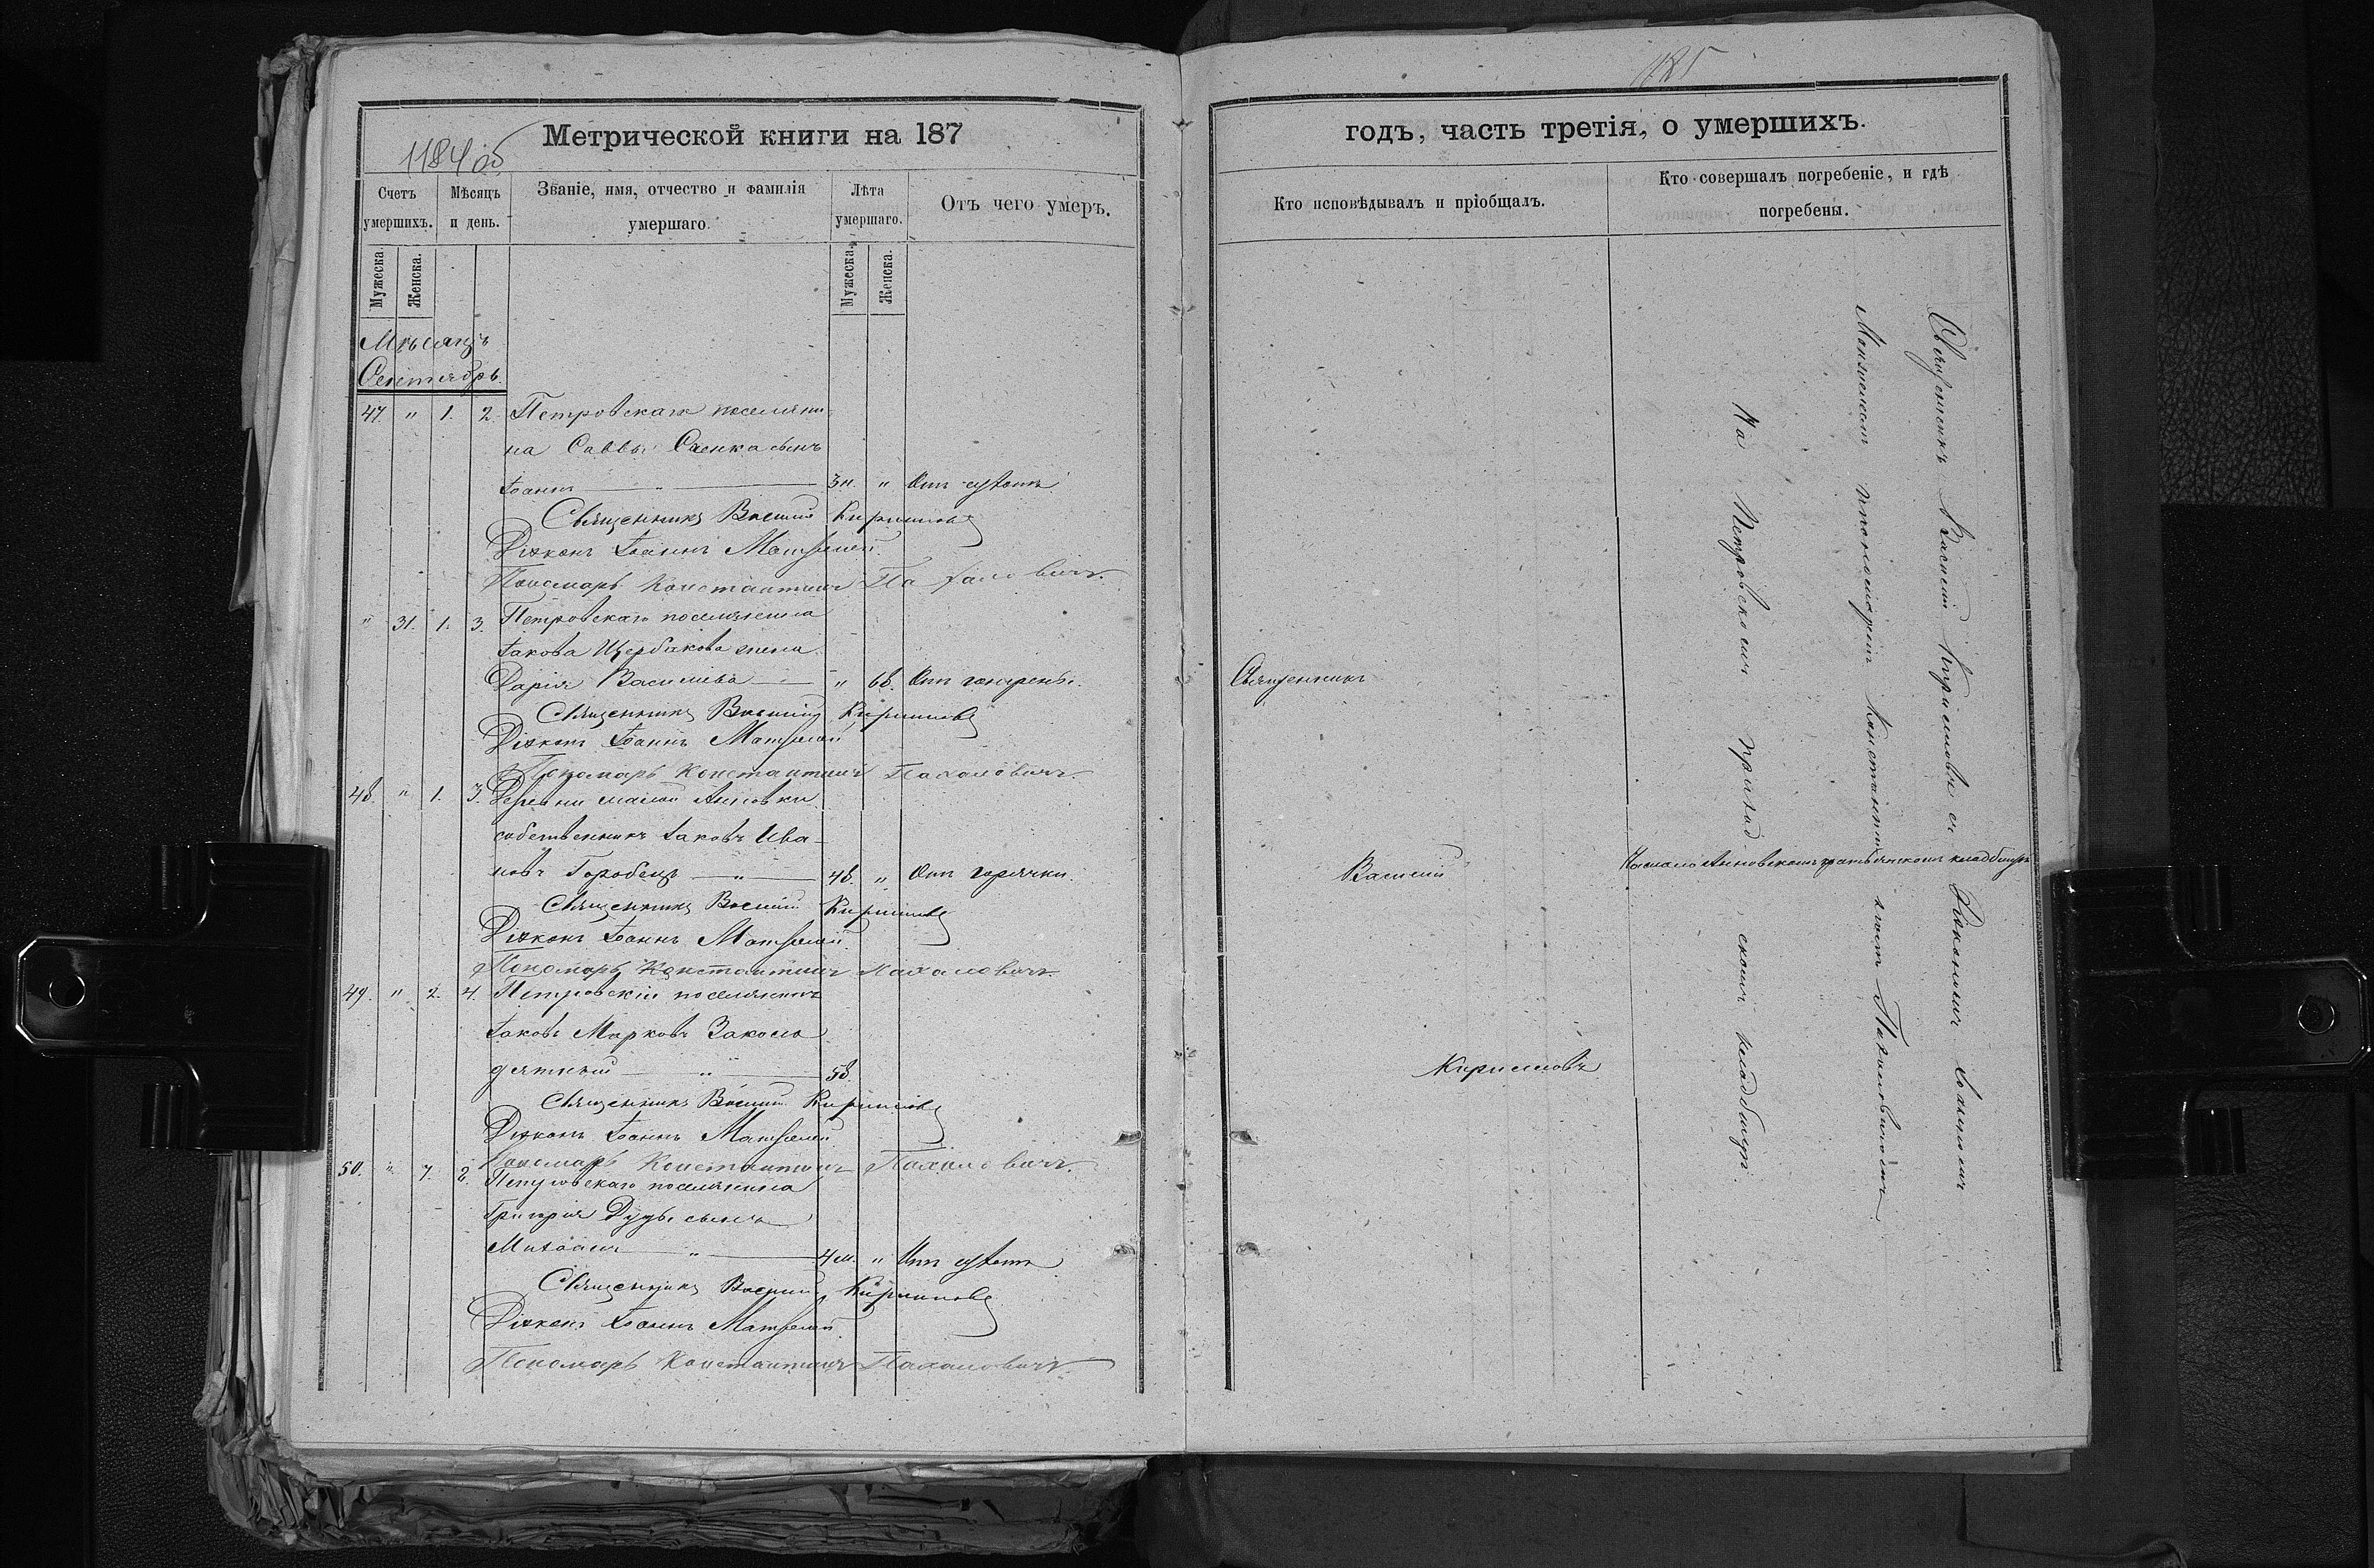 1184 об
Метрической книги на 187
Счетъ умершихъ.
Мѣсяцъ и день.
Званіе, имя, отчество и фамилія умершаго.
Лѣта умершаго.
Отъ чего умеръ.
Мужеска.
Женска.
Мужеска.
Женска.
Мѣсяцъ
Сентябрь.
47. " 1. 2. Петровскаго поселяни-
на Саввы Саенка сынъ
Іоаннъ — " — 3 н. " Отъ сухотъ
Священникъ Василій Кирилловъ
Діаконъ Іоаннъ
Пономарь Константинъ Пахаловичъ.
" 31. 1. 3. Петровскаго поселянина
Іакова Щербакова жена
Дарія Васильева — " 68. Отъ гангрены.
Священникъ Василій Кирилловъ
Діаконъ Іоаннъ
Пономарь Константинъ Пахаловичъ.
48. " 1. 3. Деревни малой Анновки
собственникъ Іаковъ Ива-
новъ Горобецъ — " — 48. " Отъ горячки.
Священникъ Василій Кирилловъ
Діаконъ Іоаннъ
Пономарь Константинъ Пахаловичъ.
49. " 2. 4. Петровскій поселянинъ
Іаковъ Марковъ Заколо
дяжный — " — 58.
Священникъ Василій Кирилловъ
Діаконъ Іоаннъ
Пономарь Константинъ Пахаловичъ.
50. " 7. 8. Петровскаго поселянина
Григорія Дуды сынъ
Михаилъ — " — 4 м. " Отъ сухотъ
Священникъ Василій Кирилловъ
Діаконъ Іоаннъ
Пономарь Константинъ Пахаловичъ
годъ, часть третія, о умершихъ.
Кто исповѣдывалъ и пріобщалъ.
Кто совершалъ погребеніе, и гдѣ погребены.
Священникъ
Василій
Кирилловъ
Священникъ Василій Кирилловъ съ Діакономъ Іоанномъ
и пономаремъ Константиномъ Пахаловичемъ
На Петровскомъ приход скомъ кладбищѣ.
На мало Анновскомъ кладбищѣ